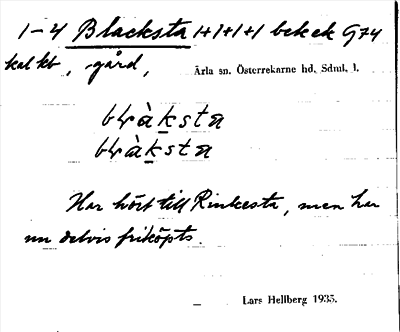 1-4 Blacksta 1+1+1+1 bekek G74
kal kb, gård, Ärla sn. Österrekarne hd, Sdml, l.
blràksta
blràksta
Har hört till Rinkesta, men har
nu delvis friköpts.
Lars Hellberg 1935.